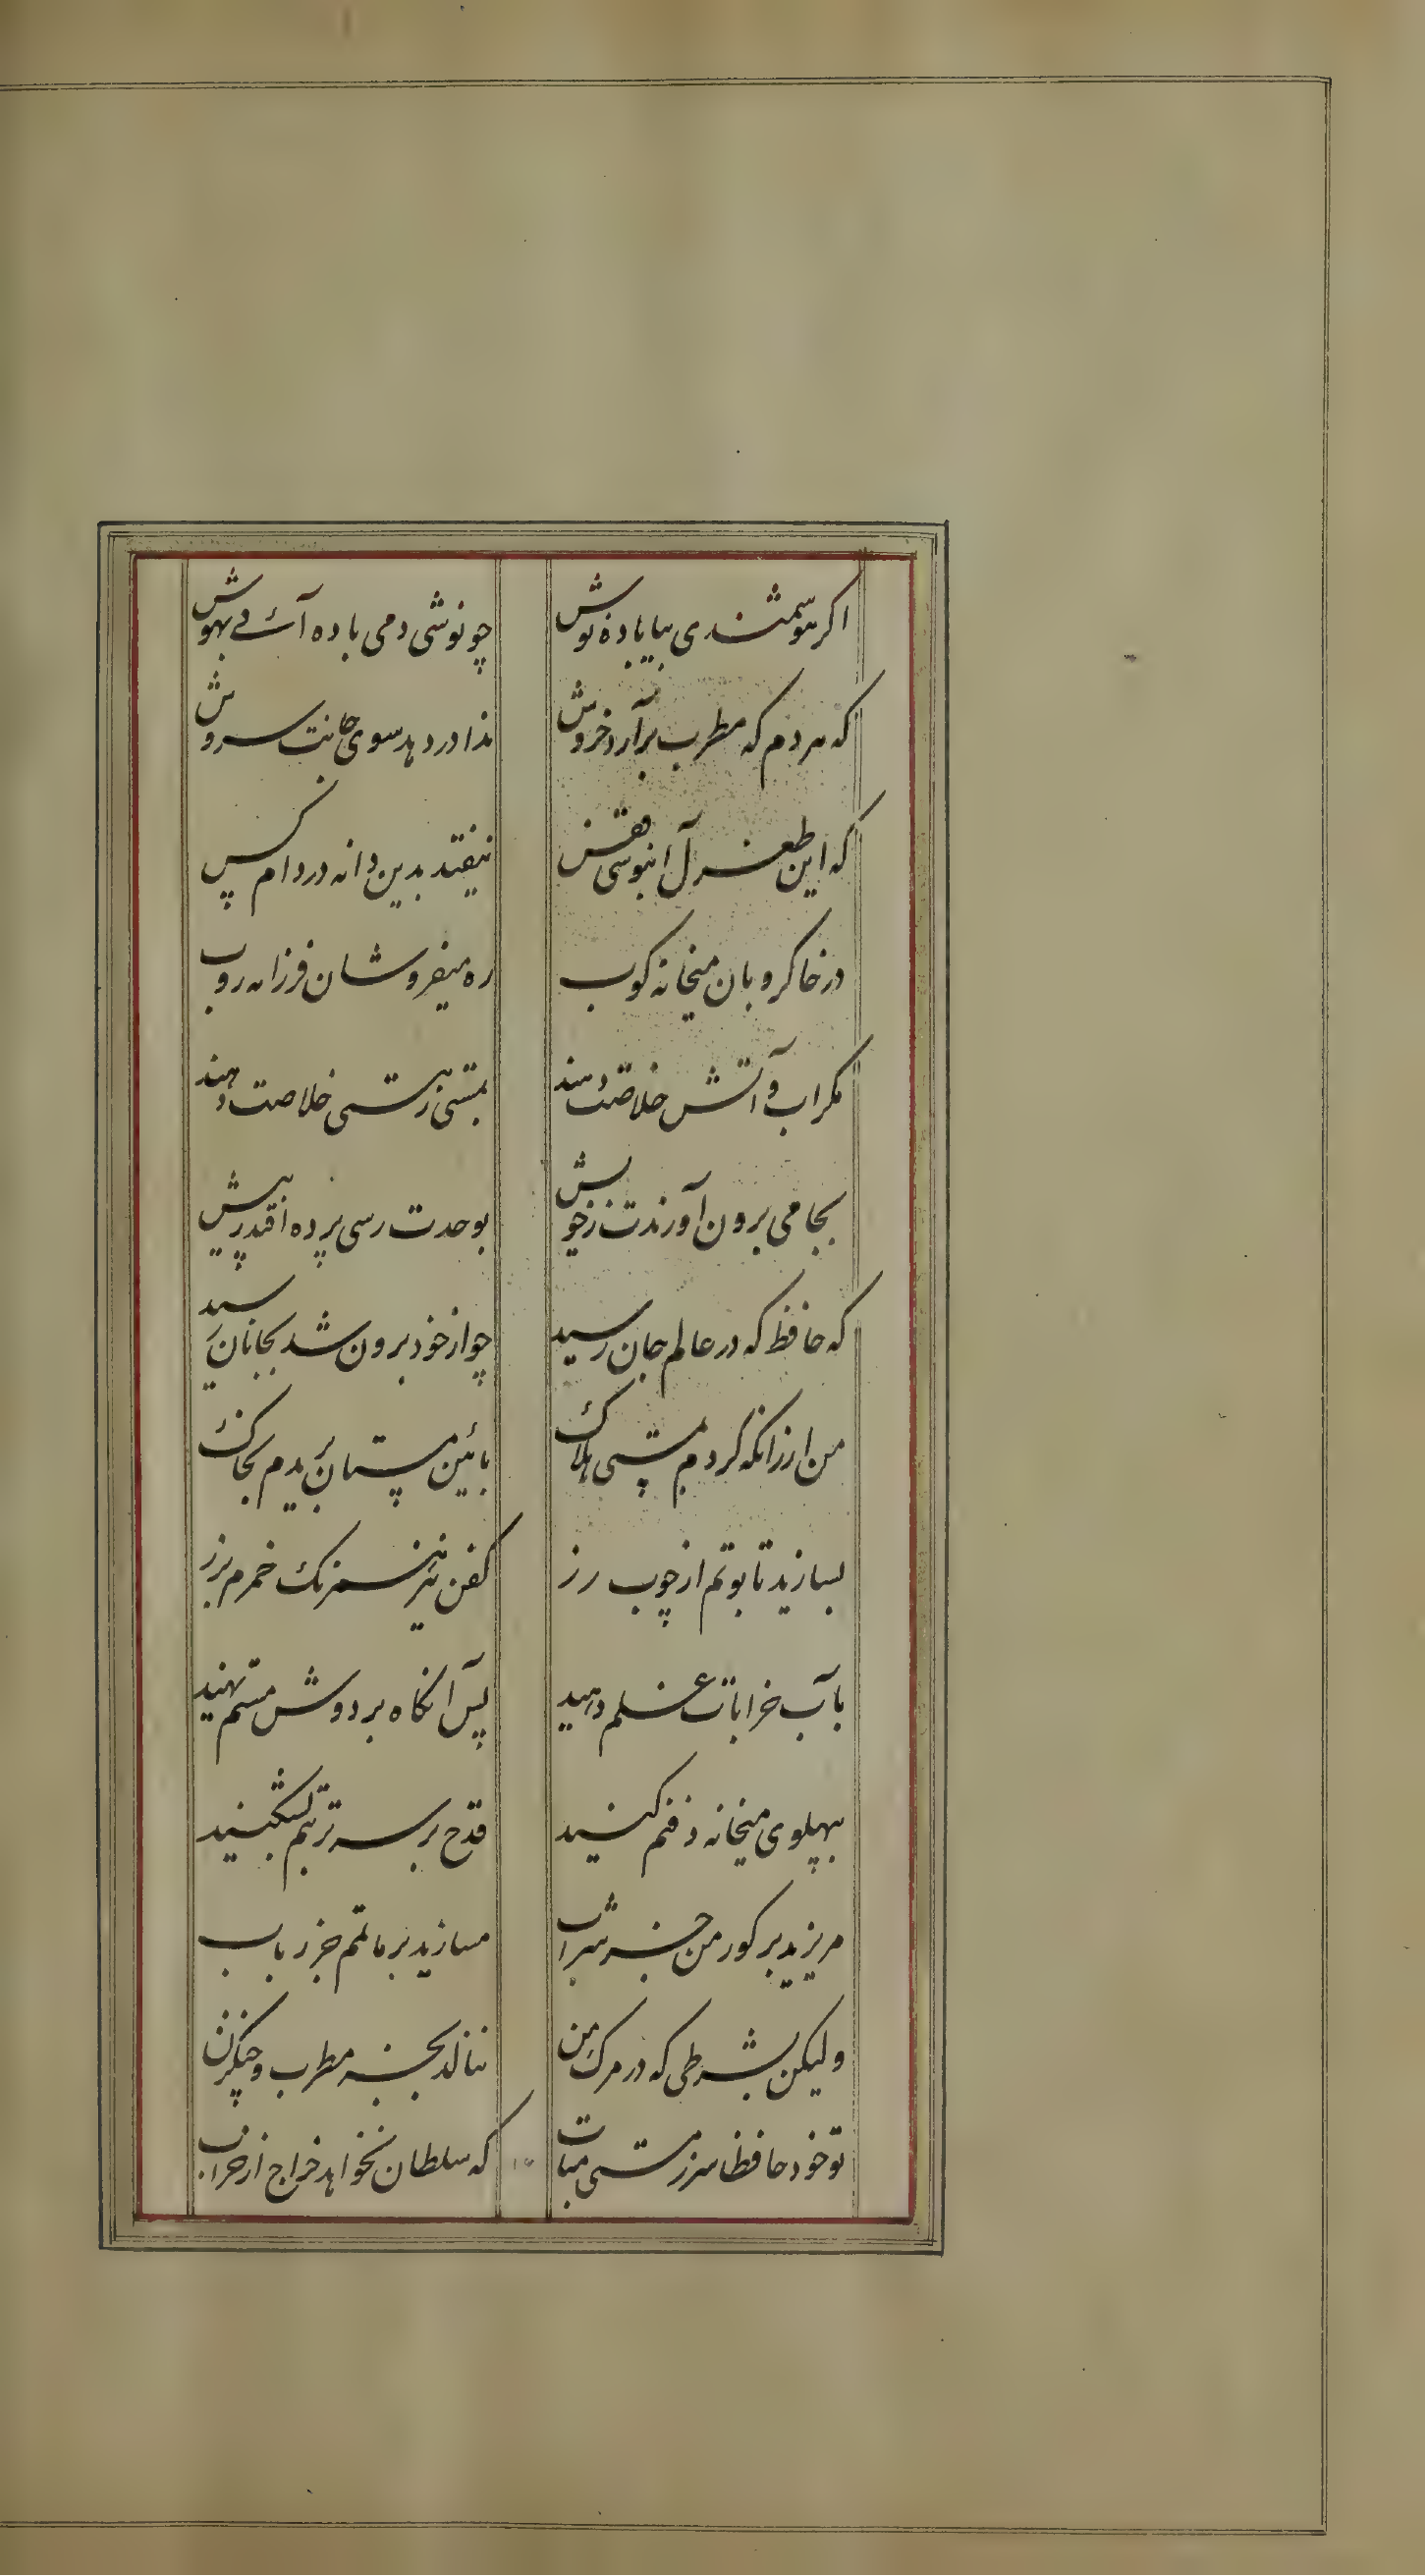 اکر هوشمندی بیا باده نوش چو نوشی دمی باده آئی بهوش
که هر دم که مطرب برآرد خروش ندا در دهد سوی جانت سروش
که این طغرل آبنوسی قفس نیفتد بدین دانه در دام کس
در خاکروبان میخانه کوب ره میفروشان فرزانه روب
مکر آب و آتش خلاصت دهند بمستی ز هستی خلاصت دهند
بجامی برون آورندت ز خویش بوحدت رسی پرده افتد ز پیش
که حافظ که در عالم جان رسید چو از خود برون شد بجانان رسید
من ار زانکه کردم بمستی هلاک بآئین مستان بریدم بخاک
بسازید تابوتم از چوب رز کفن نیز هم رنک خمرم برز
بآب خرابات غسلم دهید پس آنکاه بر دوش مستم نهید
بپهلوی میخانه دفنم کنید قدح بر سر تربتم بشکنید
مریزید بر کور من جز شراب مسازید بر ماتمم جز رباب
ولیکن بشرطی که در مرک من ننالد بجز مطرب و چنک زن
تو خود حافظا سر ز مستی متاب که سلطان نخواهد خراج از خراب